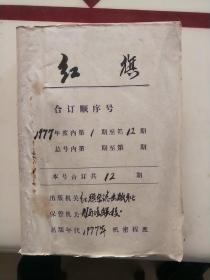 红旗
合订顺序号
1977年度内第1期至第12期
总号内第 期至第 期
本号合订共12期
出版机关红旗杂志出版社
保管机关
出版年代1977年 机密程度